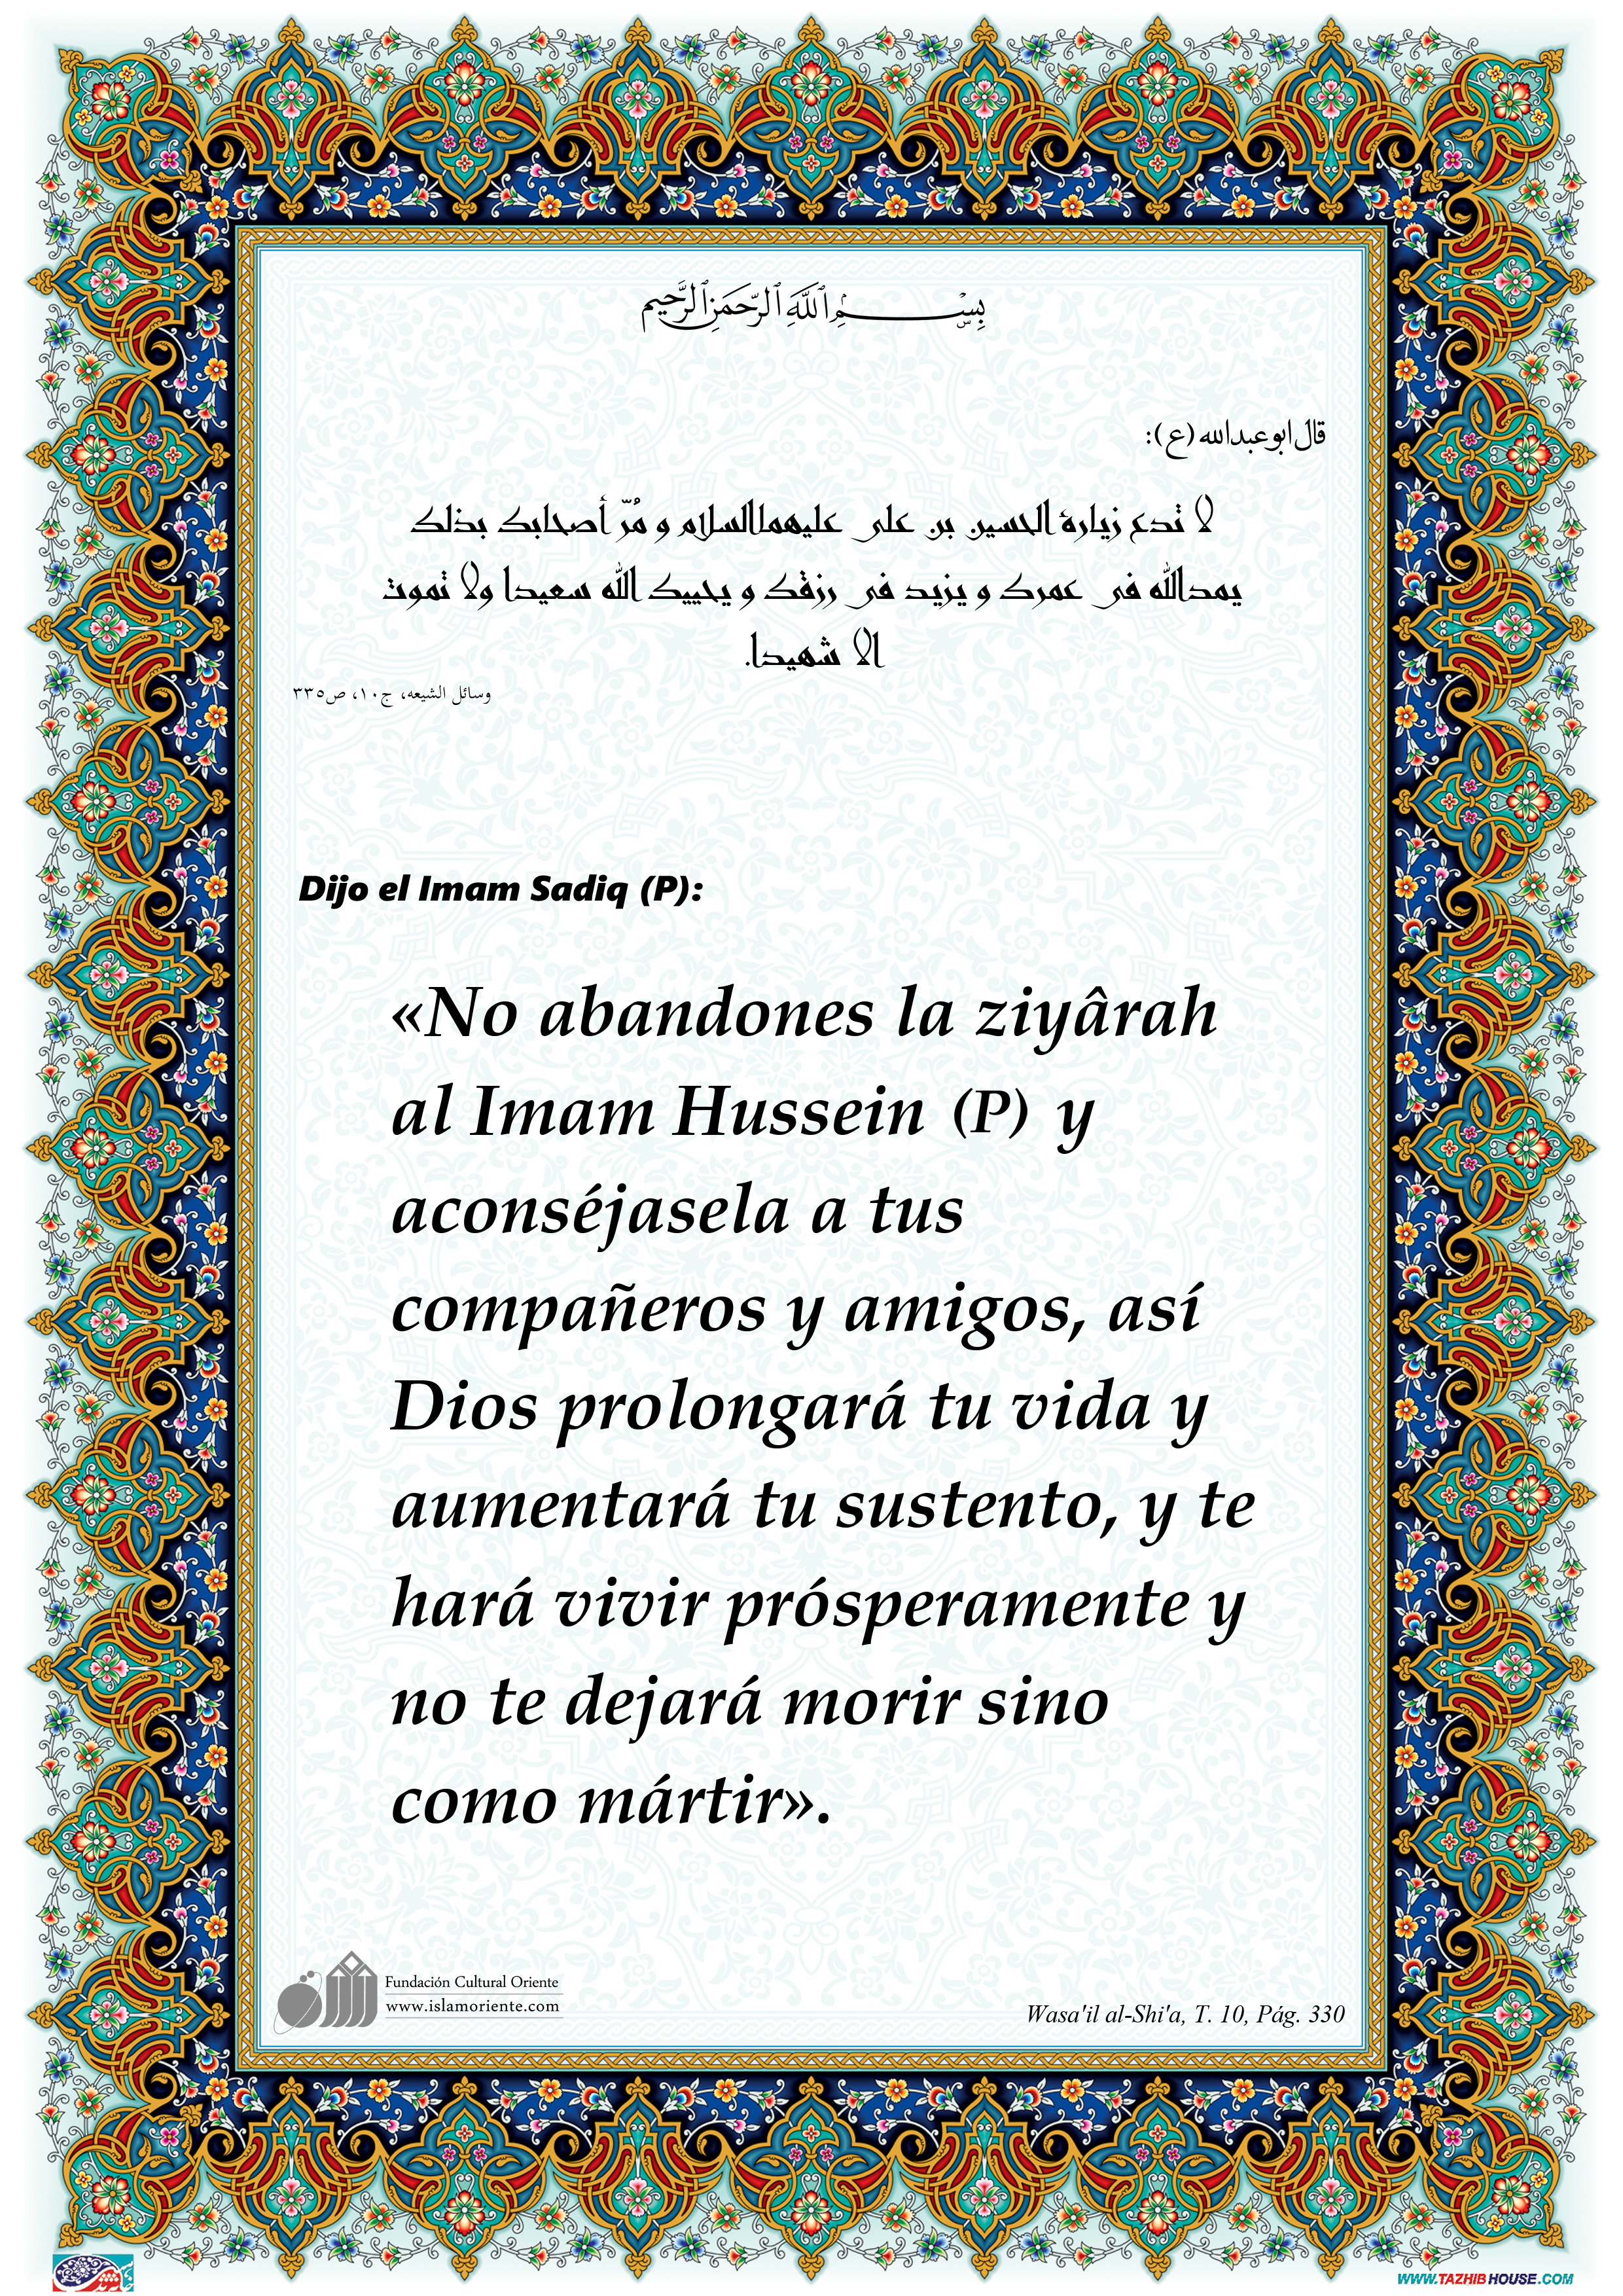 بِسْمِ ٱللَّهِ ٱلرَّحْمَنِ ٱلرَّحِيمِ
قال ابوعبدالله (ع):
لا تدع زيارة الحسين بن على عليهماالسلام و مُرّ أصحابك بذلك
يمدالله فى عمرك و يزيد فى رزقك و يحييك الله سعيدا ولا تموت
الا شهيدا.
وسائل الشيعه، ج۱۰، ص۳۳۵
Dijo el Imam Sadiq (P):
«No abandones la ziyârah
al Imam Hussein (P) y
aconséjasela a tus
compañeros y amigos, así
Dios prolongará tu vida y
aumentará tu sustento, y te
hará vivir prósperamente y
no te dejará morir sino
como mártir».
Fundación Cultural Oriente
www.islamoriente.com
Wasa'il al-Shi'a, T. 10, Pág. 330
WWW.TAZHIBHOUSE.COM